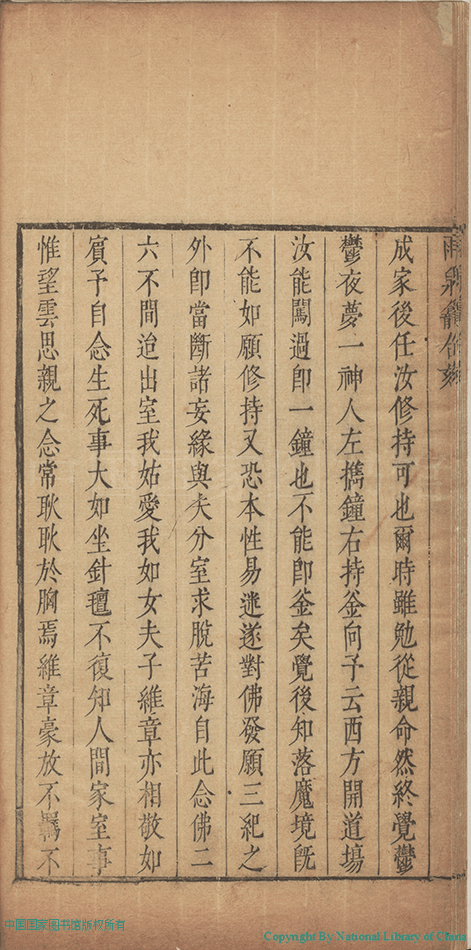 成家後任汝修持可也爾時雖勉從親命然終覺鬱
鬱夜夢一神人左擕鐘右持釜向予云西方開道塲
汝能闖過即一鐘也不能即釜矣覺後知落魔境旣
不能如願修持又恐本性易迷遂對佛發願三紀之
外即當斷諸妄緣與夫分室求脫苦海自此念佛二
六不間迨出室我姑愛我如女夫子維章亦相敬如
賓予自念生死事大如坐針氊不復知人間家室事
惟望雲思親之念常耿耿於胸焉維章豪放不羈不
中国国家图书馆版权所有
Copyright By National Library of China